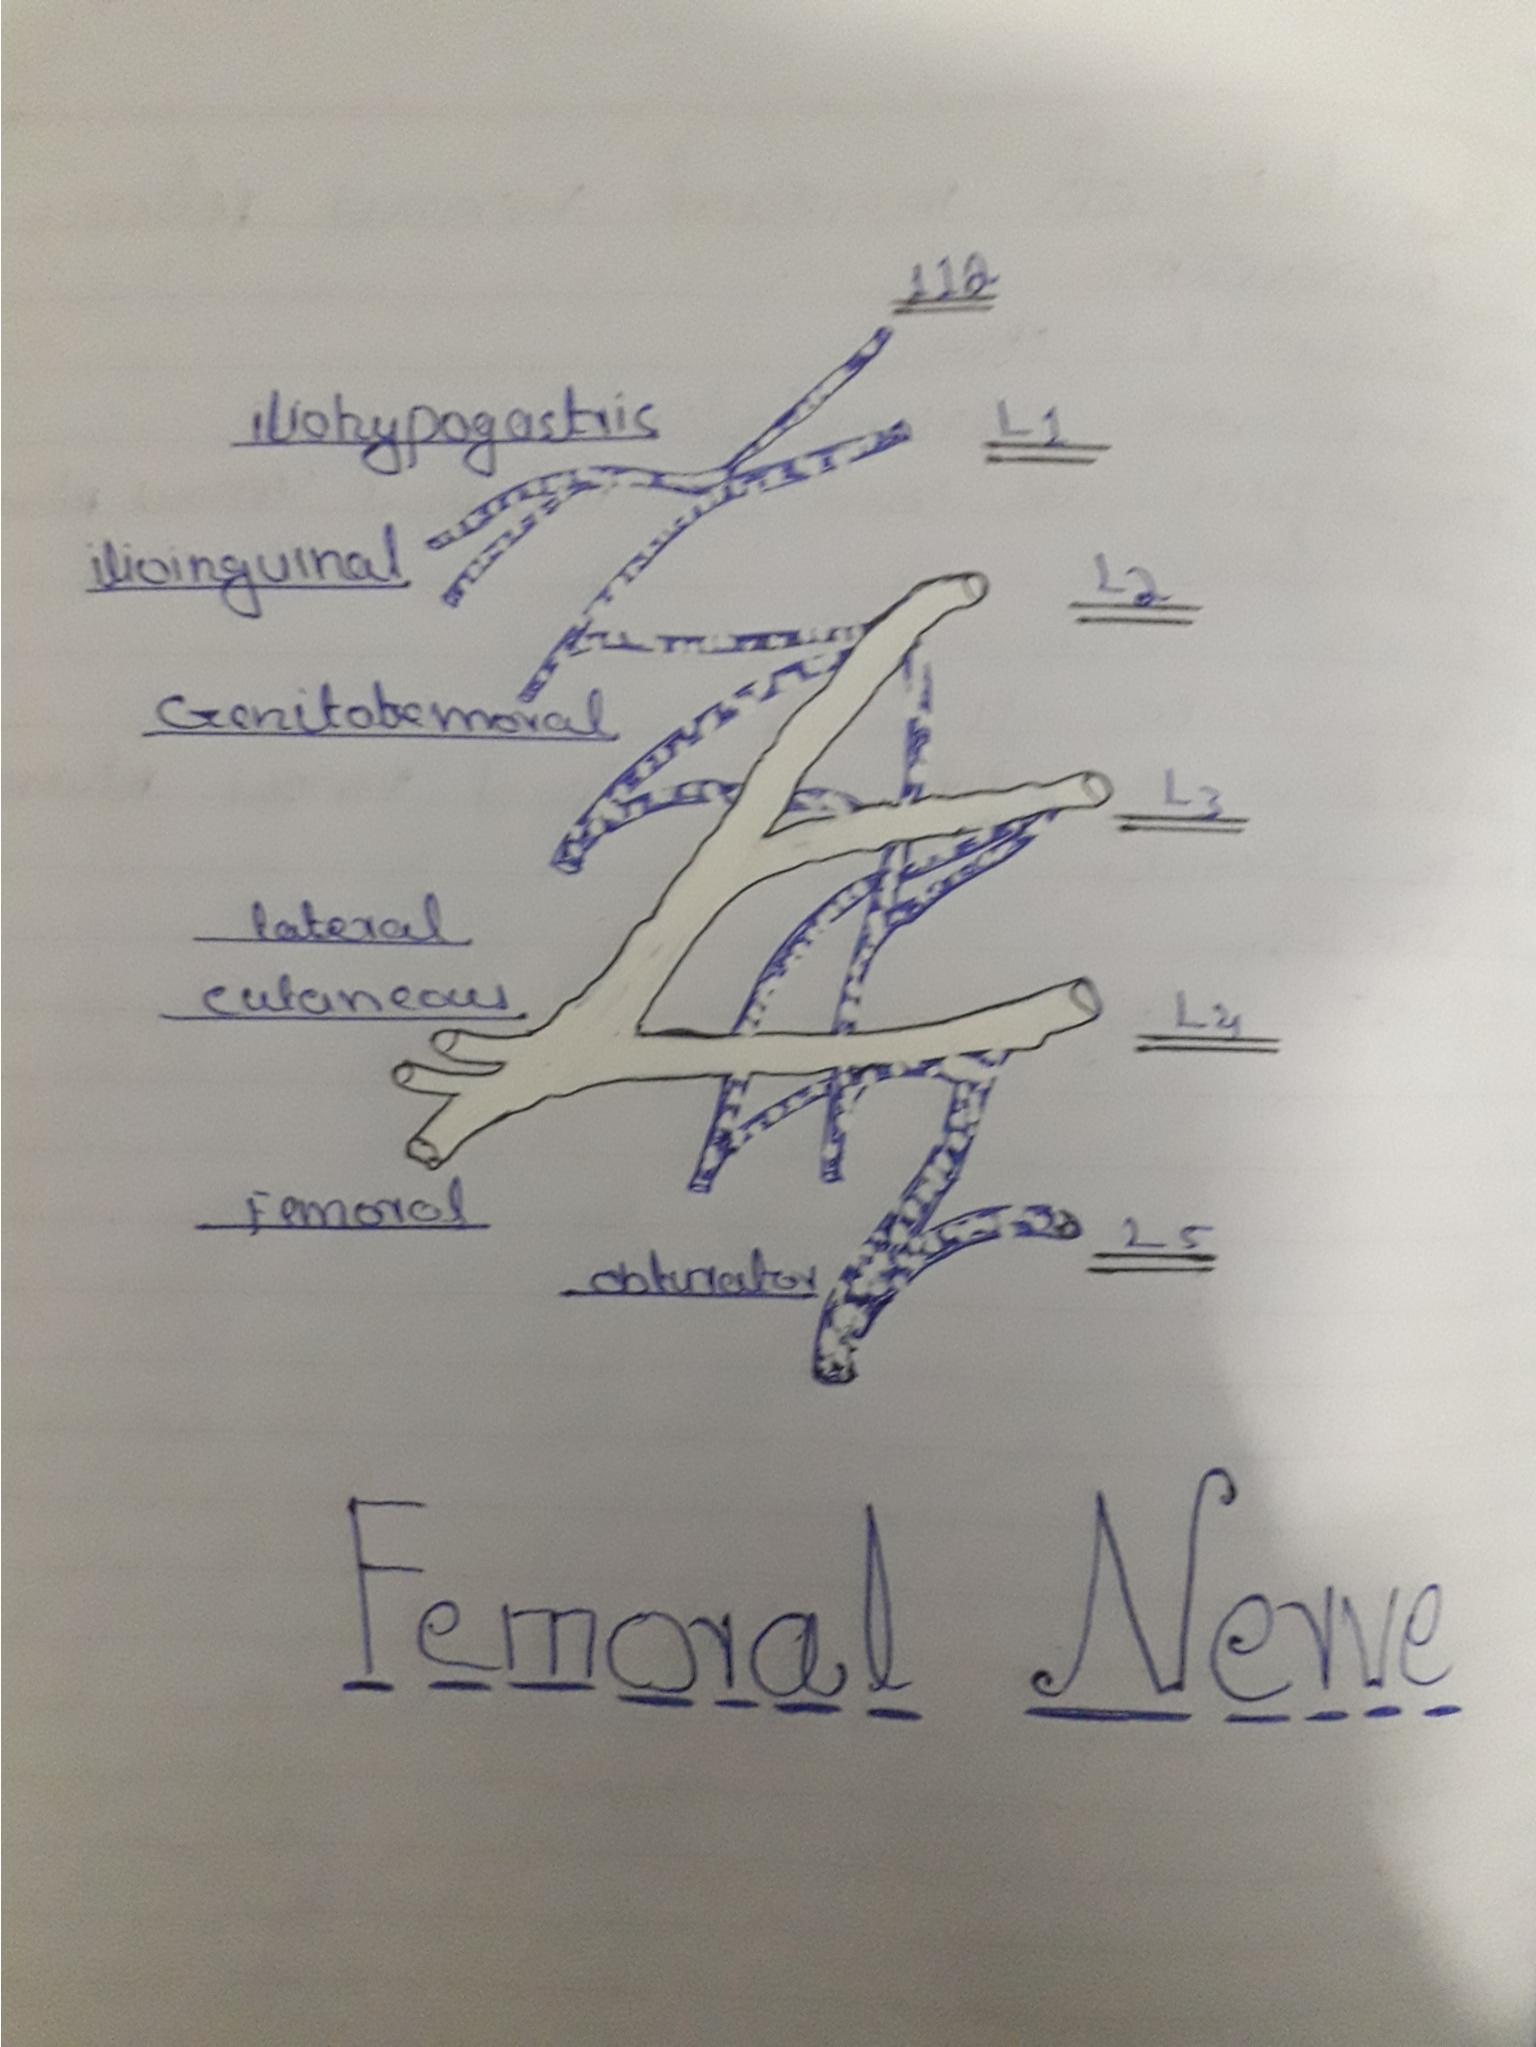 112
iliohypogastric
L1
ilioinguinal
L2
Genitobemoral
L3
lateral
cutaneous
L4
Femoral
obturator
L5
Femoral Nerve